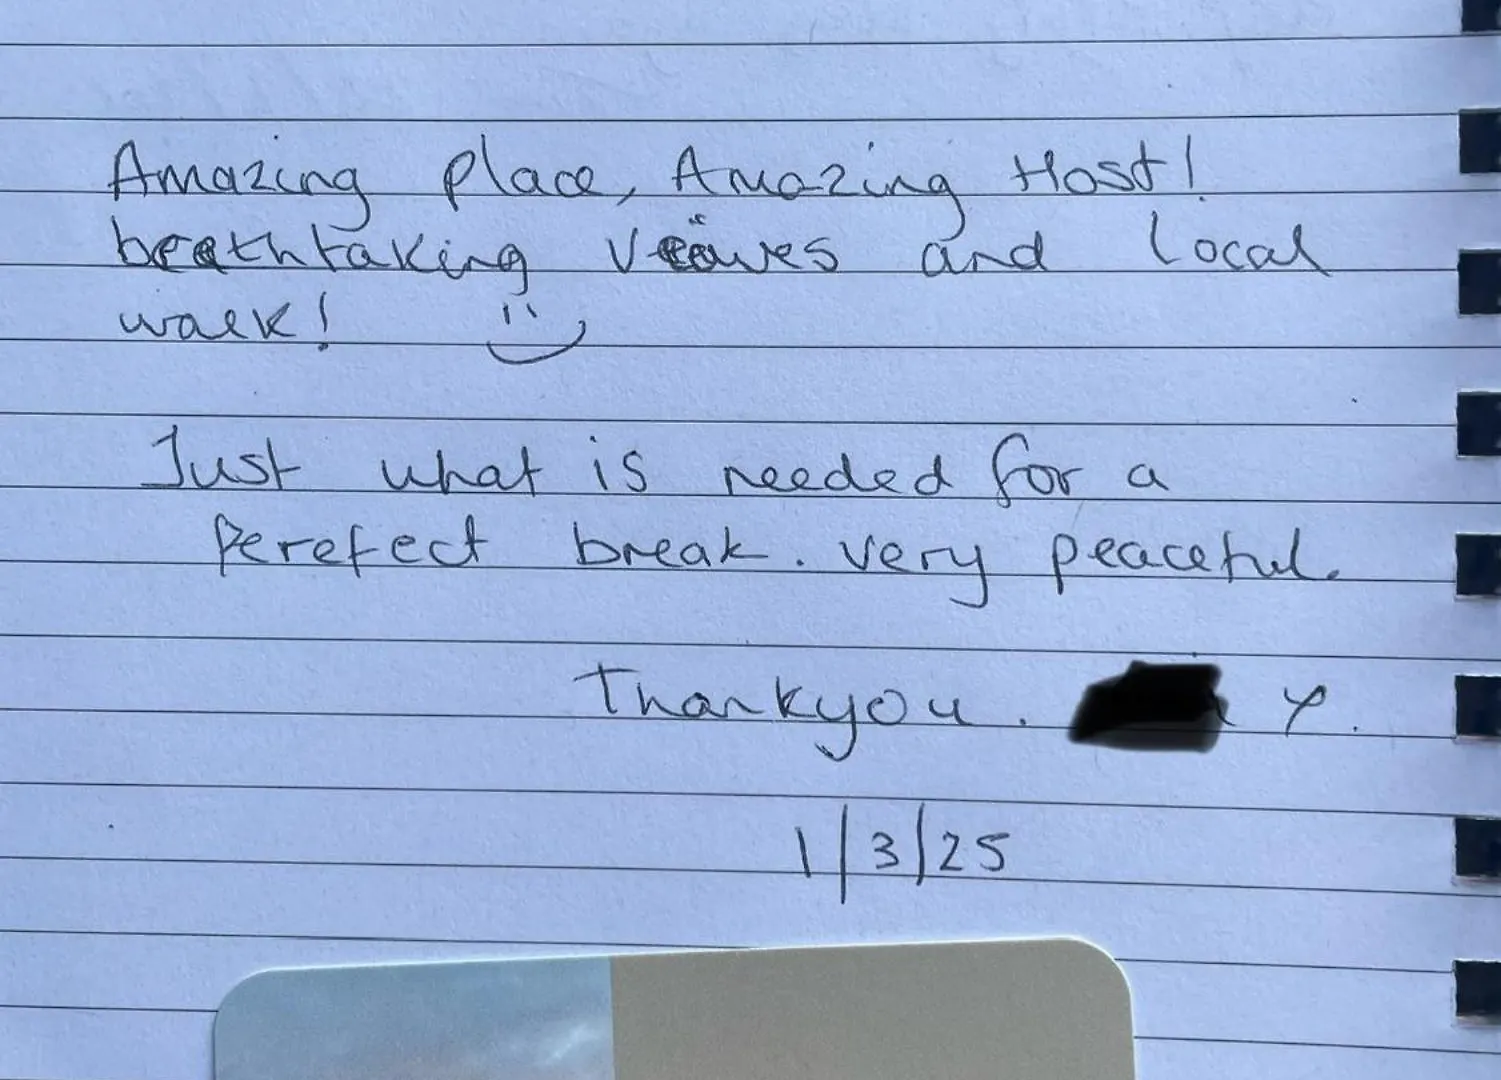 Amazing place, Amazing Host!
breathtaking veiwes and local
walk! :)
Just what is needed for a
perefect break. very peaceful.
Thankyou. x.
1/3/25